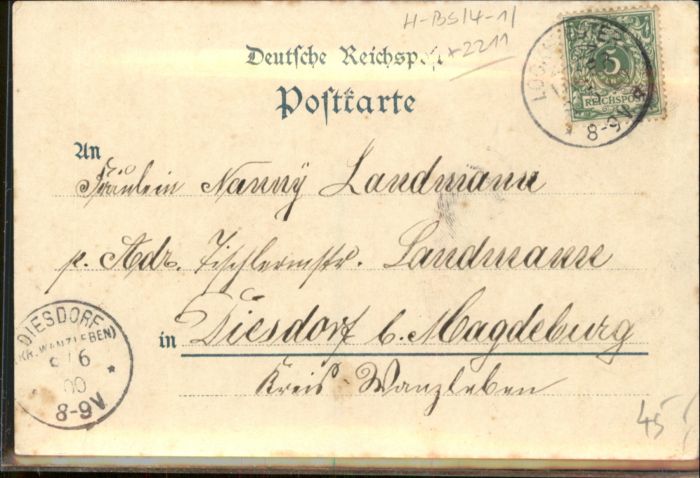 H-BS/4-1/
+2211
Deutsche Reichspost
Postkarte
5
REICHSPOST
8-9V
An
Fräulein Nanny Landmann
p. Adr. Tischlermstr. Landmann
in Diesdorf b. Magdeburg
Kreis Wanzleben
DIESDORF
(KR. WANZLEBEN)
6
00 *
8-9V
45